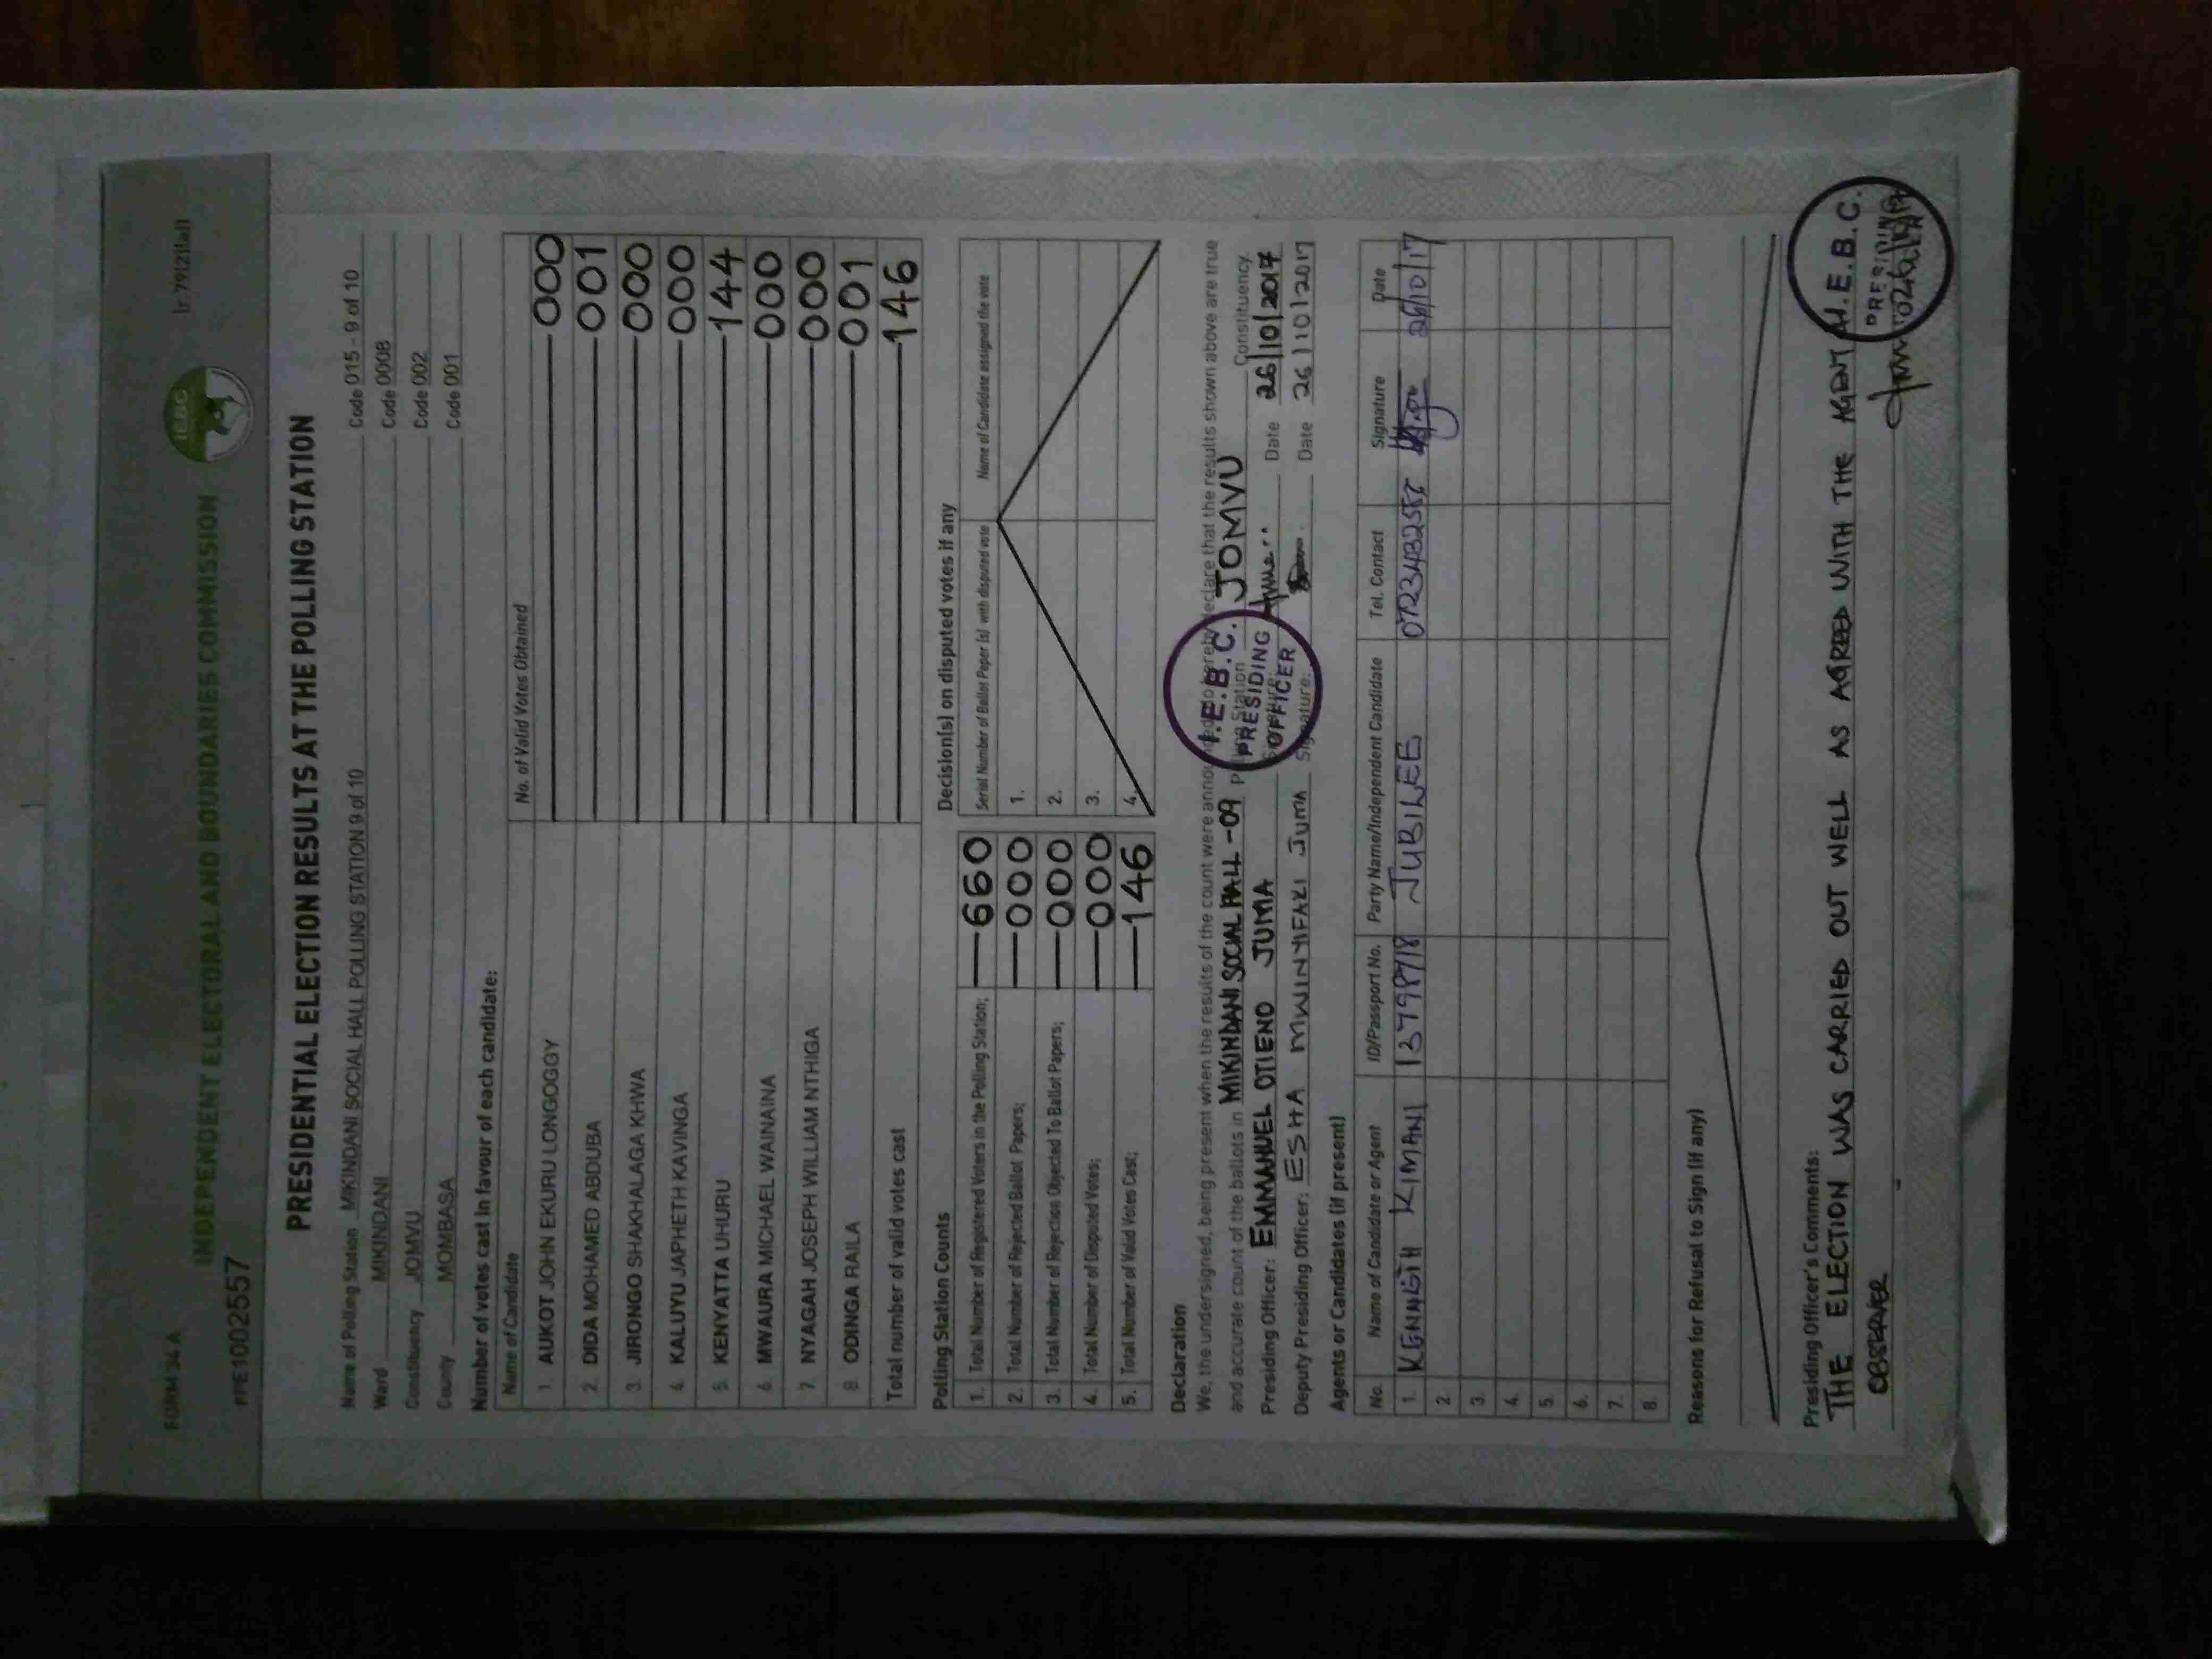 FORM 34 A
INDEPENDENT ELECTORAL AND BOUNDARIES COMMISSION
IEBC
(r 79(2)(a))
PFE1002557
PRESIDENTIAL ELECTION RESULTS AT THE POLLING STATION
Name of Polling Station MIKINDANI SOCIAL HALL POLLING STATION 9 of 10 Code 015 - 9 of 10
Ward MIKINDANI Code 0008
Constituency JOMVU Code 002
County MOMBASA Code 001
Number of votes cast in favour of each candidate:
Name of Candidate No. of Valid Votes Obtained
1. AUKOT JOHN EKURU LONGOGGY 000
2. DIDA MOHAMED ABDUBA 001
3. JIRONGO SHAKHALAGA KHWA 000
4. KALUYU JAPHETH KAVINGA 000
5. KENYATTA UHURU 144
6. MWAURA MICHAEL WAINAINA 000
7. NYAGAH JOSEPH WILLIAM NTHIGA 000
8. ODINGA RAILA 001
Total number of valid votes cast 146
Polling Station Counts
1. Total Number of Registered Voters in the Polling Station; 660
2. Total Number of Rejected Ballot Papers; 000
3. Total Number of Rejection Objected To Ballot Papers; 000
4. Total Number of Disputed Votes; 000
5. Total Number of Valid Votes Cast; 146
Decision(s) on disputed votes if any
Serial Number of Ballot Paper (s) with disputed vote Name of Candidate assigned the vote
1.
2.
3.
4.
Declaration
We, the undersigned, being present when the results of the count were announced do hereby declare that the results shown above are true
and accurate count of the ballots in MIKINDANI SOCIAL HALL -09 Polling Station JOMVU Constituency.
Presiding Officer: EMMANUEL OTIENO JUMA Signature: Date 26/10/2017
Deputy Presiding Officer: ESHA MWINYIFAKI JUMA Signature: Date 26/10/2017
I.E.B.C. PRESIDING OFFICER
Agents or Candidates (if present)
No. Name of Candidate or Agent ID/Passport No. Party Name/Independent Candidate Tel. Contact Signature Date
1. KENNETH KIMANI 13798918 JUBILEE 26/10/17
2.
3.
4.
5.
6.
7.
8.
Reasons for Refusal to Sign (if any)
Presiding Officer's Comments:
THE ELECTION WAS CARRIED OUT WELL AS AGREED WITH THE AGENT
OBSERVER
I.E.B.C. PRESIDING